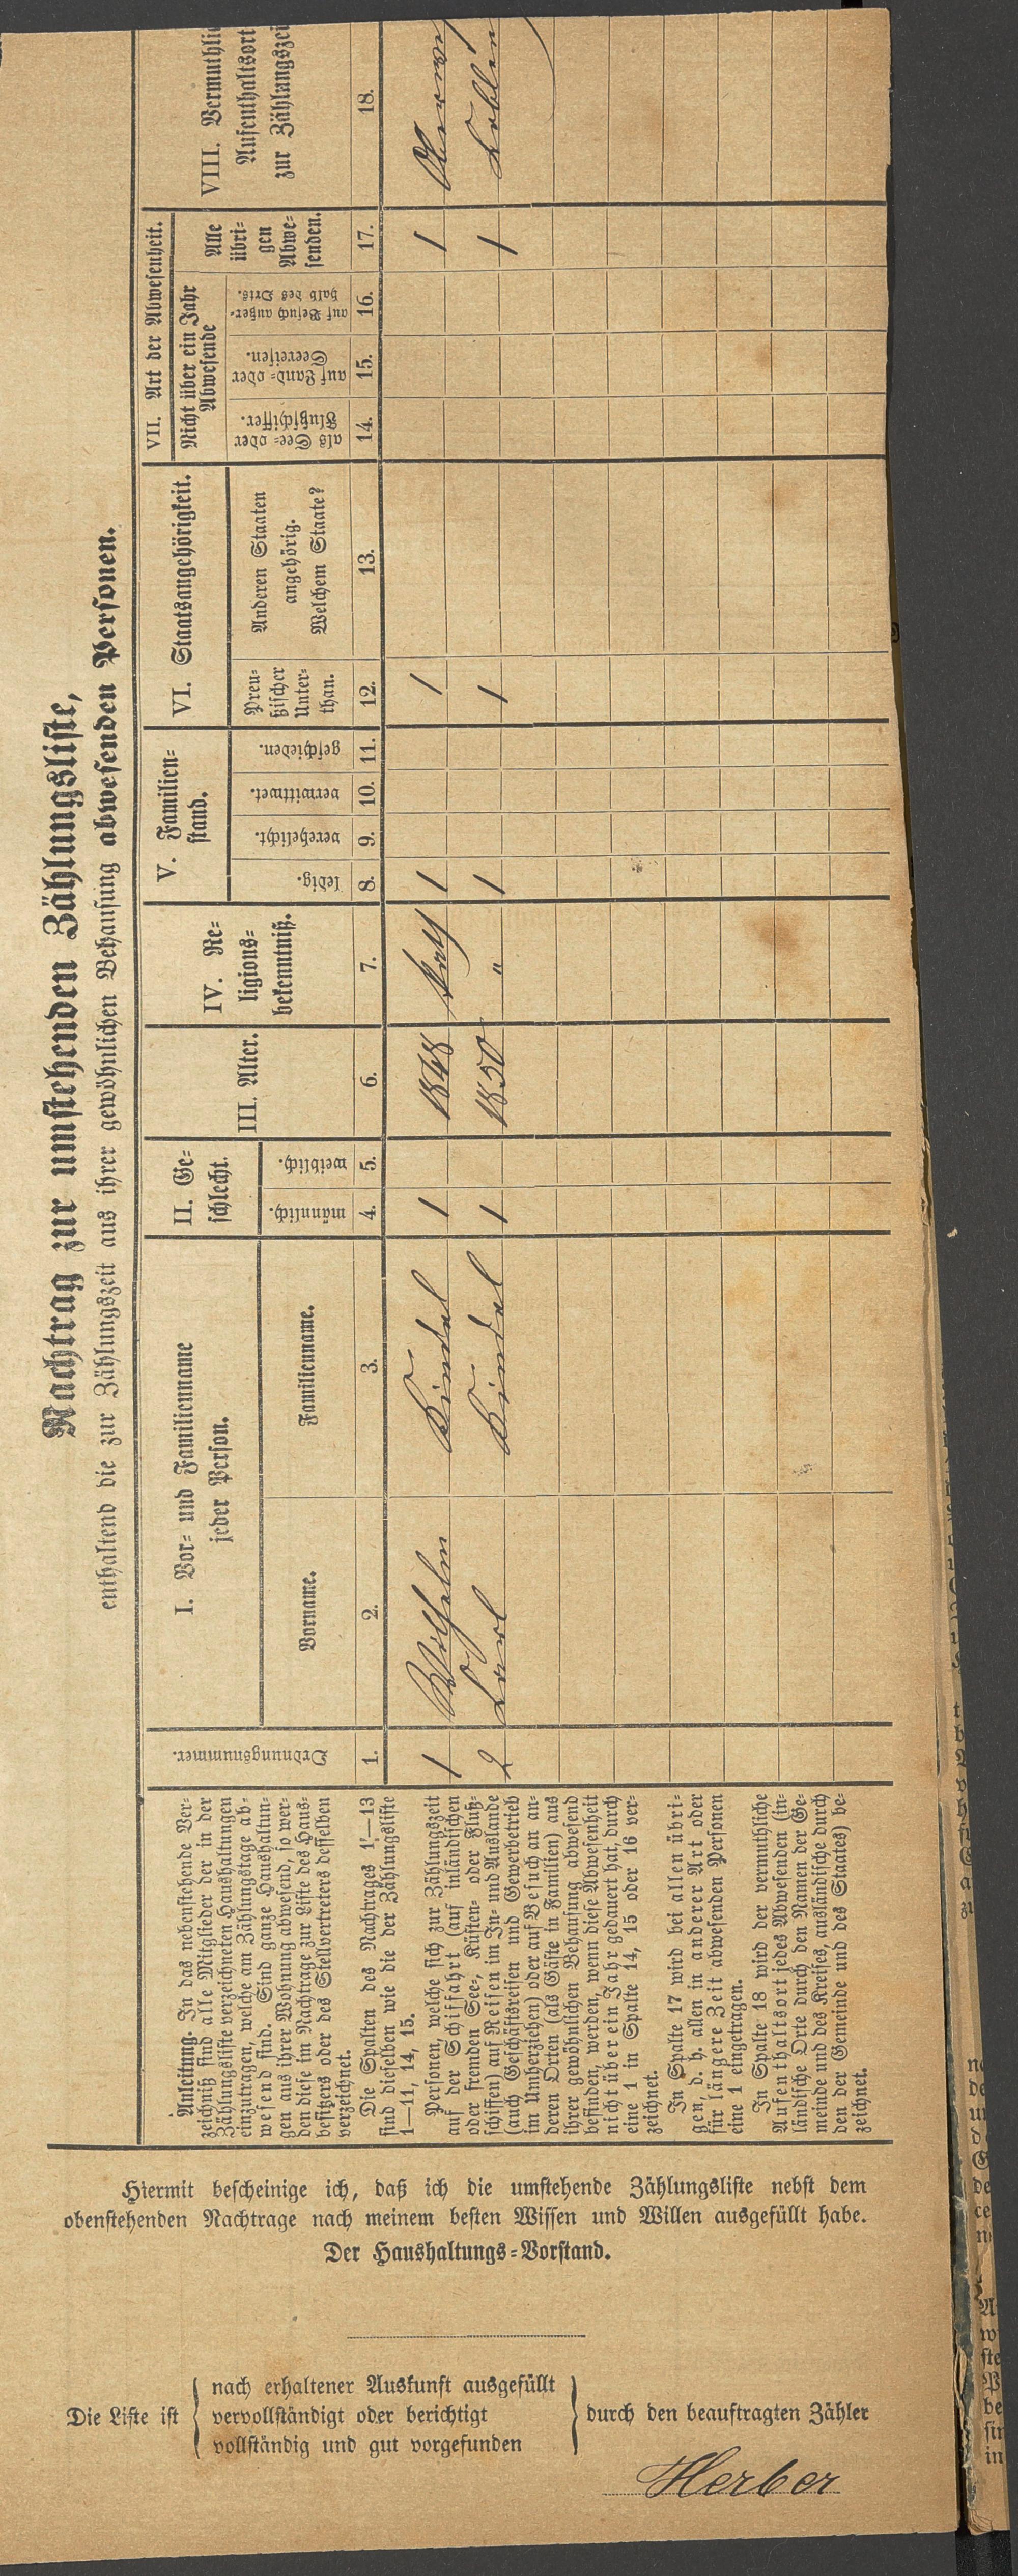 Nachtrag zur umstehenden Zählungsliste,
enthaltend die zur Zählungszeit aus ihrer gewöhnlichen Behausung abwesenden Personen.
Anleitung. In das nebenstehende Ver-
zeichniß sind alle Mitglieder der in der
Zählungsliste verzeichneten Haushaltungen
einzutragen, welche am Zählungstage ab-
wesend sind. Sind ganze Haushaltun-
gen aus ihrer Wohnung abwesend, so wer-
den diese im Nachtrage zur Liste des Haus-
besitzers oder des Stellvertreters desselben
verzeichnet.
Die Spalten des Nachtrages 1—13
sind dieselben wie die der Zählungsliste
1—11, 14, 15.
Personen, welche sich zur Zählungszeit
auf der Schiffahrt (auf inländischen
oder fremden See-, Küsten- oder Fluß-
schiffen) auf Reisen im In- und Auslande
(auch Geschäftsreisen und Gewerbetrieb
im Umherziehen) oder auf Besuch an an-
deren Orten (als Gäste in Familien) aus
ihrer gewöhnlichen Behausung abwesend
befinden, werden, wenn diese Abwesenheit
nicht über ein Jahr gedauert hat, durch
eine 1 in Spalte 14, 15 oder 16 ver-
zeichnet.
In Spalte 17 wird bei allen übri-
gen, d. h. allen in anderer Art oder
für längere Zeit abwesenden Personen
eine 1 eingetragen.
In Spalte 18 wird der vermuthliche
Aufenthaltsort jedes Abwesenden (in-
ländische Orte durch den Namen der Ge-
meinde und des Kreises, ausländische durch
den der Gemeinde und des Staates) be-
zeichnet.
Ordnungsnummer.
I. Vor- und Familienname
jeder Person.
Vorname.
Familienname.
II. Ge-
schlecht.
männlich.
weiblich.
III. Alter.
IV. Re-
ligions-
bekenntniß.
V. Familien-
stand.
ledig.
verehelicht.
verwittwet.
geschieden.
VI. Staatsangehörigkeit.
Preu-
ßischer
Unter-
than.
Anderen Staaten
angehörig.
Welchem Staate?
VII. Art der Abwesenheit.
Nicht über ein Jahr
Abwesende
als See- oder
Flußschiffer.
auf Land- oder
Seereisen.
auf Besuch außer-
halb des Orts.
Alle
übri-
gen
Abwe-
senden.
VIII. Vermuthlic
Aufenthaltsort
zur Zählungszei
1. 2. 3. 4. 5. 6. 7. 8. 9. 10. 11. 12. 13. 14. 15. 16. 17. 18.
1 Wilhelm Kindel 1 1848 Kath 1 1 1
2 Carl Kindel 1 1850 " 1 1 1 Coblen
Hiermit bescheinige ich, daß ich die umstehende Zählungsliste nebst dem
obenstehenden Nachtrage nach meinem besten Wissen und Willen ausgefüllt habe.
Der Haushaltungs-Vorstand.
Die Liste ist
nach erhaltener Auskunft ausgefüllt
vervollständigt oder berichtigt
vollständig und gut vorgefunden
durch den beauftragten Zähler
Herber